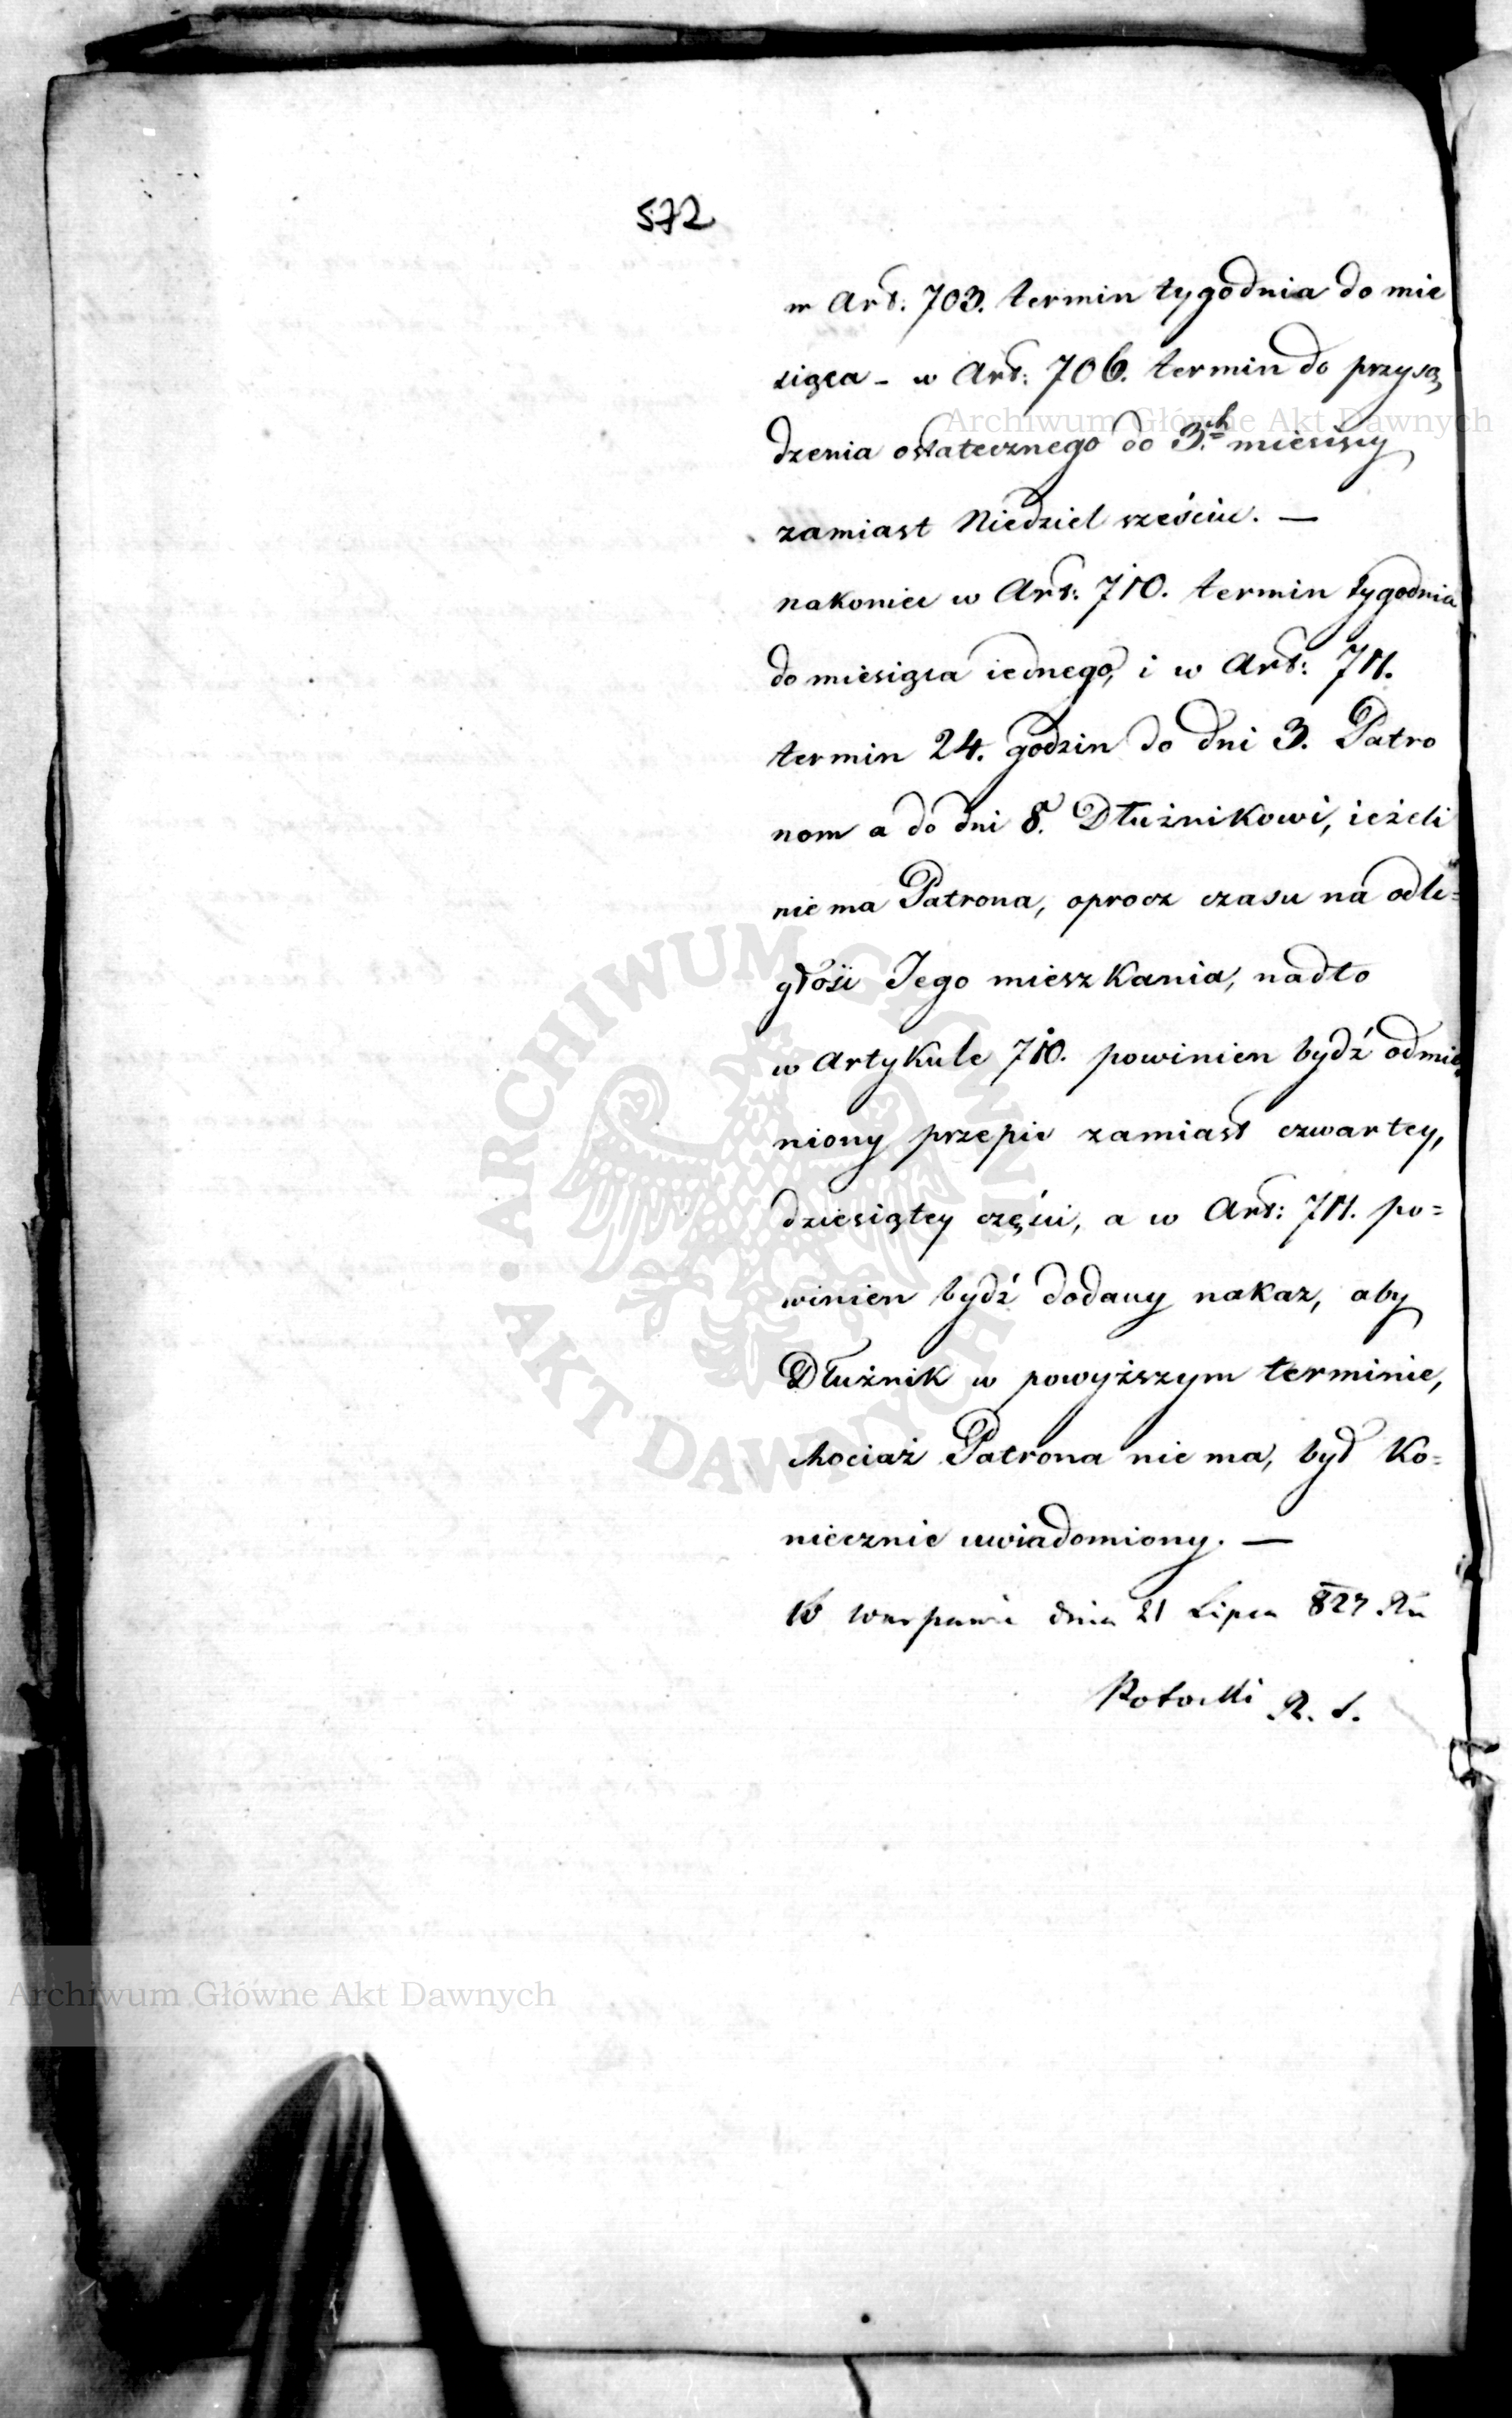 572
w Art. 703. termin tygodnia do mie
siąca - w Art: 706. termin do przysą
dzenia ostatecznego do 3.ch miesięcy
zamiast Niedziel sześciu. —
nakoniec w Art: 710. termin tygodnia
do miesiąca iednego, i w Art: 711.
termin 24. godzin do dni 3. Patro
nom a do dni 8. Dłużnikowi, ieżeli
nie ma Patrona, oprocz czasu na odle=
głośći Jego mieszkania, nadto
w Artykule 710. powinien bydź odmie
niony przepis zamiast czwartey,
dziesiątey części, a w Art: 711. po=
winien bydź dodany nakaz, aby
Dłużnik w powyższym terminie,
chociaż Patrona nie ma, był ko=
niecznie uwiadomiony. —
W Warszawie dnia 21 Lipca 827 Ru
Potocki R. S.
Archiwum Główne Akt Dawnych
ARCHIWUM GŁÓWNE • AKT DAWNYCH •
Archiwum Główne Akt Dawnych